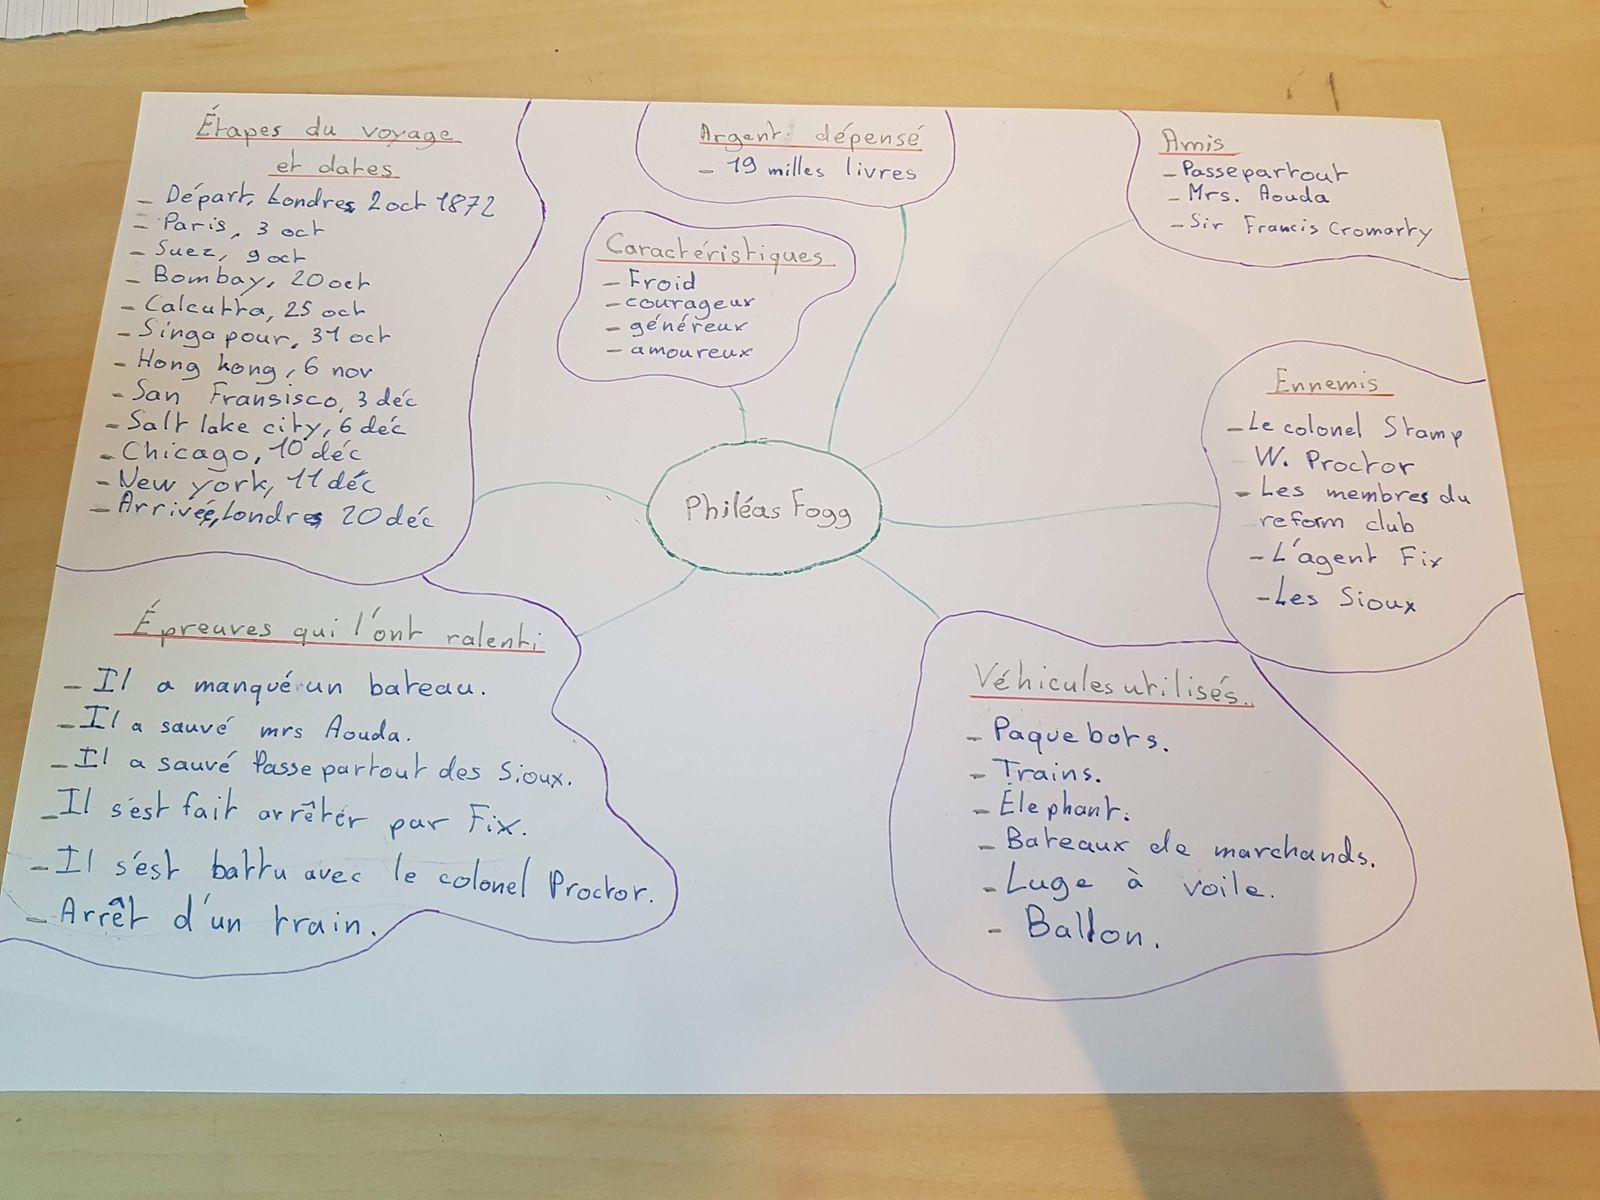 Étapes du voyage
et dates
- Départ, Londres 2 oct 1872
- Paris, 3 oct
- Suez, 9 oct
- Bombay, 20 oct
- Calcutta, 25 oct
- Singapour, 31 oct
- Hong kong, 6 nov
- San Fransisco, 3 déc
- Salt lake city, 6 déc
- Chicago, 10 déc
- New york, 11 déc
- Arrivée, Londres 20 déc
Argent dépensé
- 19 milles livres
Caractéristiques
- Froid
- courageux
- généreux
- amoureux
Amis
- Passepartout
- Mrs. Aouda
- Sir Francis Cromarty
Ennemis
- Le colonel Stamp
W. Proctor
- Les membres du
reform club
- L'agent Fix
- Les Sioux
Philéas Fogg
Épreuves qui l'ont ralenti
- Il a manqué un bateau.
- Il a sauvé mrs Aouda.
- Il a sauvé Passepartout des Sioux.
- Il s'est fait arrêter par Fix.
- Il s'est battu avec le colonel Proctor.
- Arrêt d'un train.
Véhicules utilisés.
- Paquebots.
- Trains.
- Élephant.
- Bateaux de marchands.
- Luge à voile.
- Ballon.